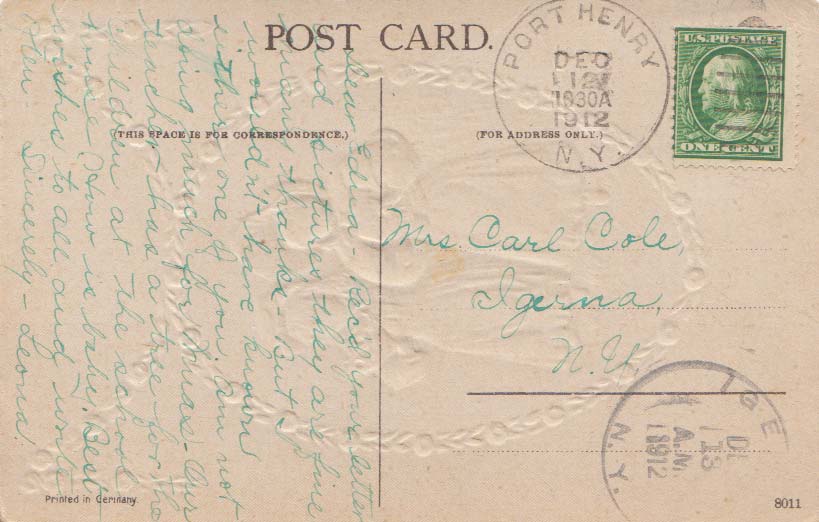 POST CARD.
(THIS SPACE IS FOR CORRESPONDENCE.)
(FOR ADDRESS ONLY.)
PORT HENRY
DEC
12
1030A
1912
N.Y.
U.S. POSTAGE
ONE CENT
Dear Edna - Rec'd your letter
and pictures they are fine
many thanks - But I
wouldn't have known
either one of you. Am not
doing much for Xmas - Our
teacher has a tree for the
children at the school
house. How is baby. Best
wishes to all and write
Sincerely - Leona.
Mrs. Carl Cole,
Igerna,
N.Y.
IGE
DE
13
A.M.
1912
N.Y.
Printed in Germany.
8011